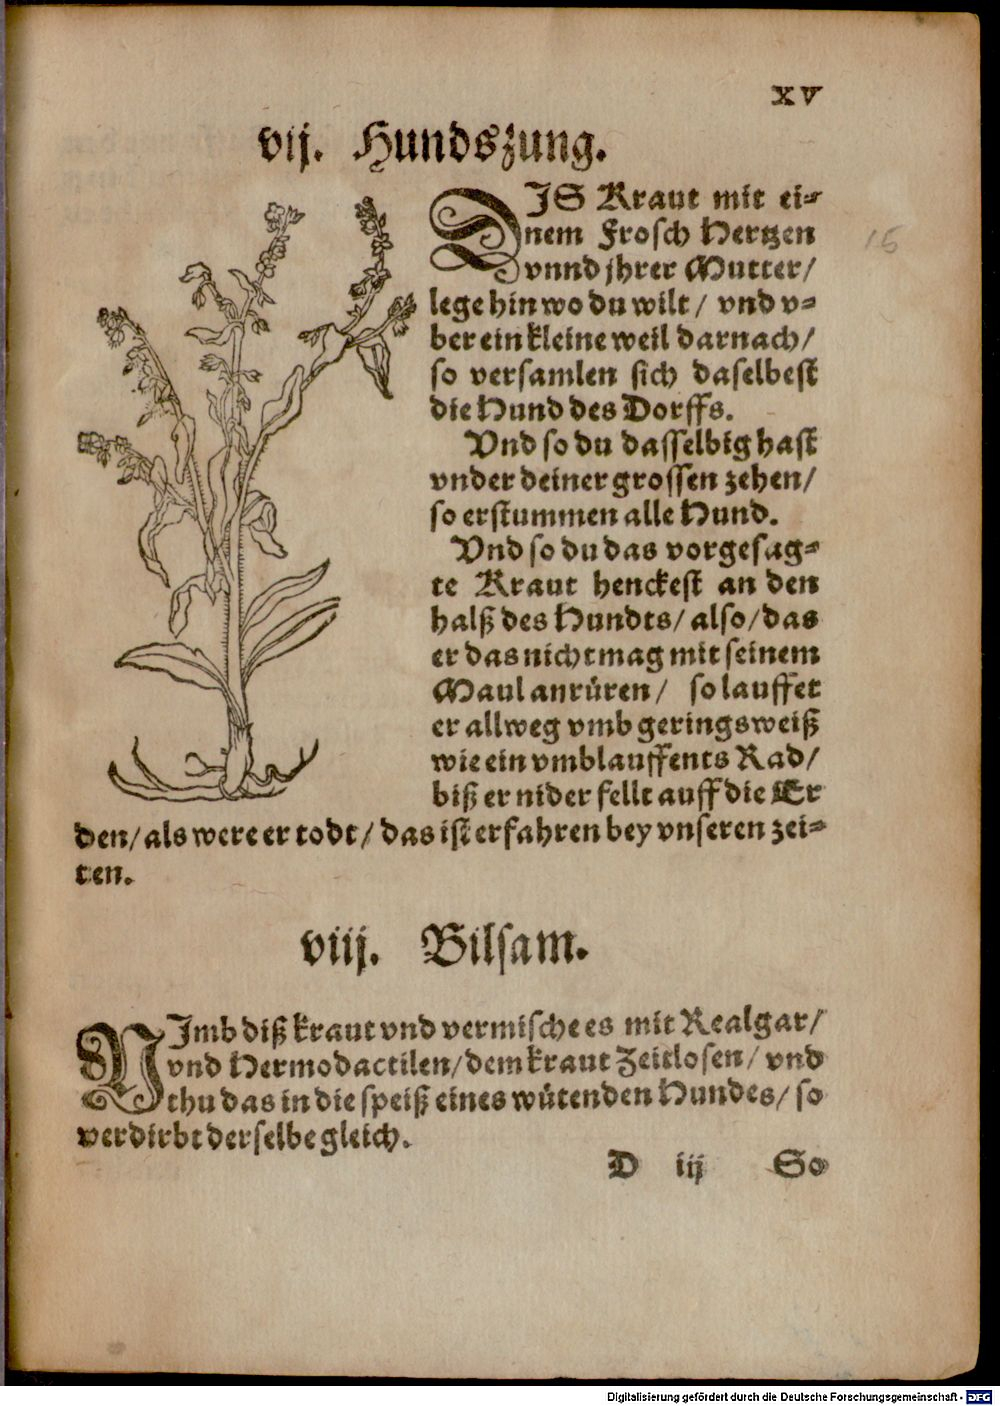 XV
vij. Hundszung.
DIS Kraut mit ei-
nem Frosch Hertzen
vnnd jhrer Mutter/
lege hin wo du wilt/ vnd v-
ber ein kleine weil darnach/
so versamlen sich daselbest
die Hund des Dorffs.
Vnd so du dasselbig hast
vnder deiner grossen zehen/
so erstummen alle Hund.
Vnd so du das vorgesag-
te Kraut henckest an den
halß des Hundts/ also/ das
er das nicht mag mit seinem
Maul anrüren/ so lauffet
er allweg vmb geringsweiß
wie ein vmblauffents Rad/
biß er nider fellt auff die Er
den/ als were er todt/ das ist erfahren bey vnseren zei-
ten.
viij. Bilsam.
NImb diß kraut vnd vermische es mit Realgar/
vnd Hermodactilen/ dem kraut Zeitlosen/ vnd
thu das in die speiß eines wütenden Hundes/ so
verdirbt derselbe gleich.
D iij So
15
Digitalisierung gefördert durch die Deutsche Forschungsgemeinschaft - DFG